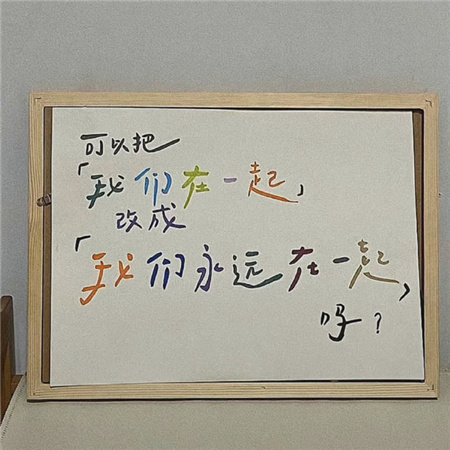 可以把
「我们在一起」
改成
「我们永远在一起」
吗？